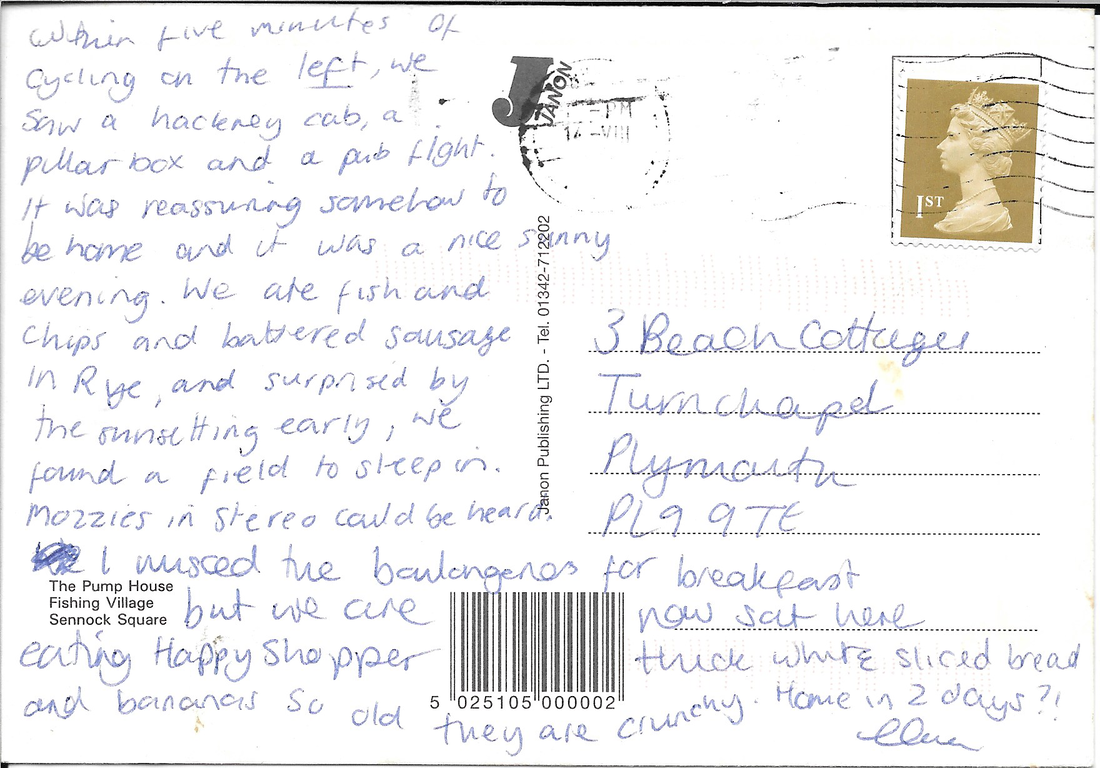 Within five minutes of
cycling on the left, we
saw a hackney cab, a
pillar box and a pub fight.
It was reassuring somehow to
be home and it was a nice sunny
evening. We ate fish and
chips and battered sausage
in Rye, and surprised by
the sunsetting early, we
found a field to sleep in.
Mozzies in stereo could be heard.
I missed the boulangeries for breakfast
but we are now sat here
eating Happy Shopper thick white sliced bread
and bananas so old they are crunchy. Home in 2 days?!
J
JANON
-VIII
1ST
Janon Publishing LTD. - Tel. 01342-712202
3 Beach Cottages
Turnchapel
Plymouth
PL9 9TE
The Pump House
Fishing Village
Sennock Square
5 025105 000002